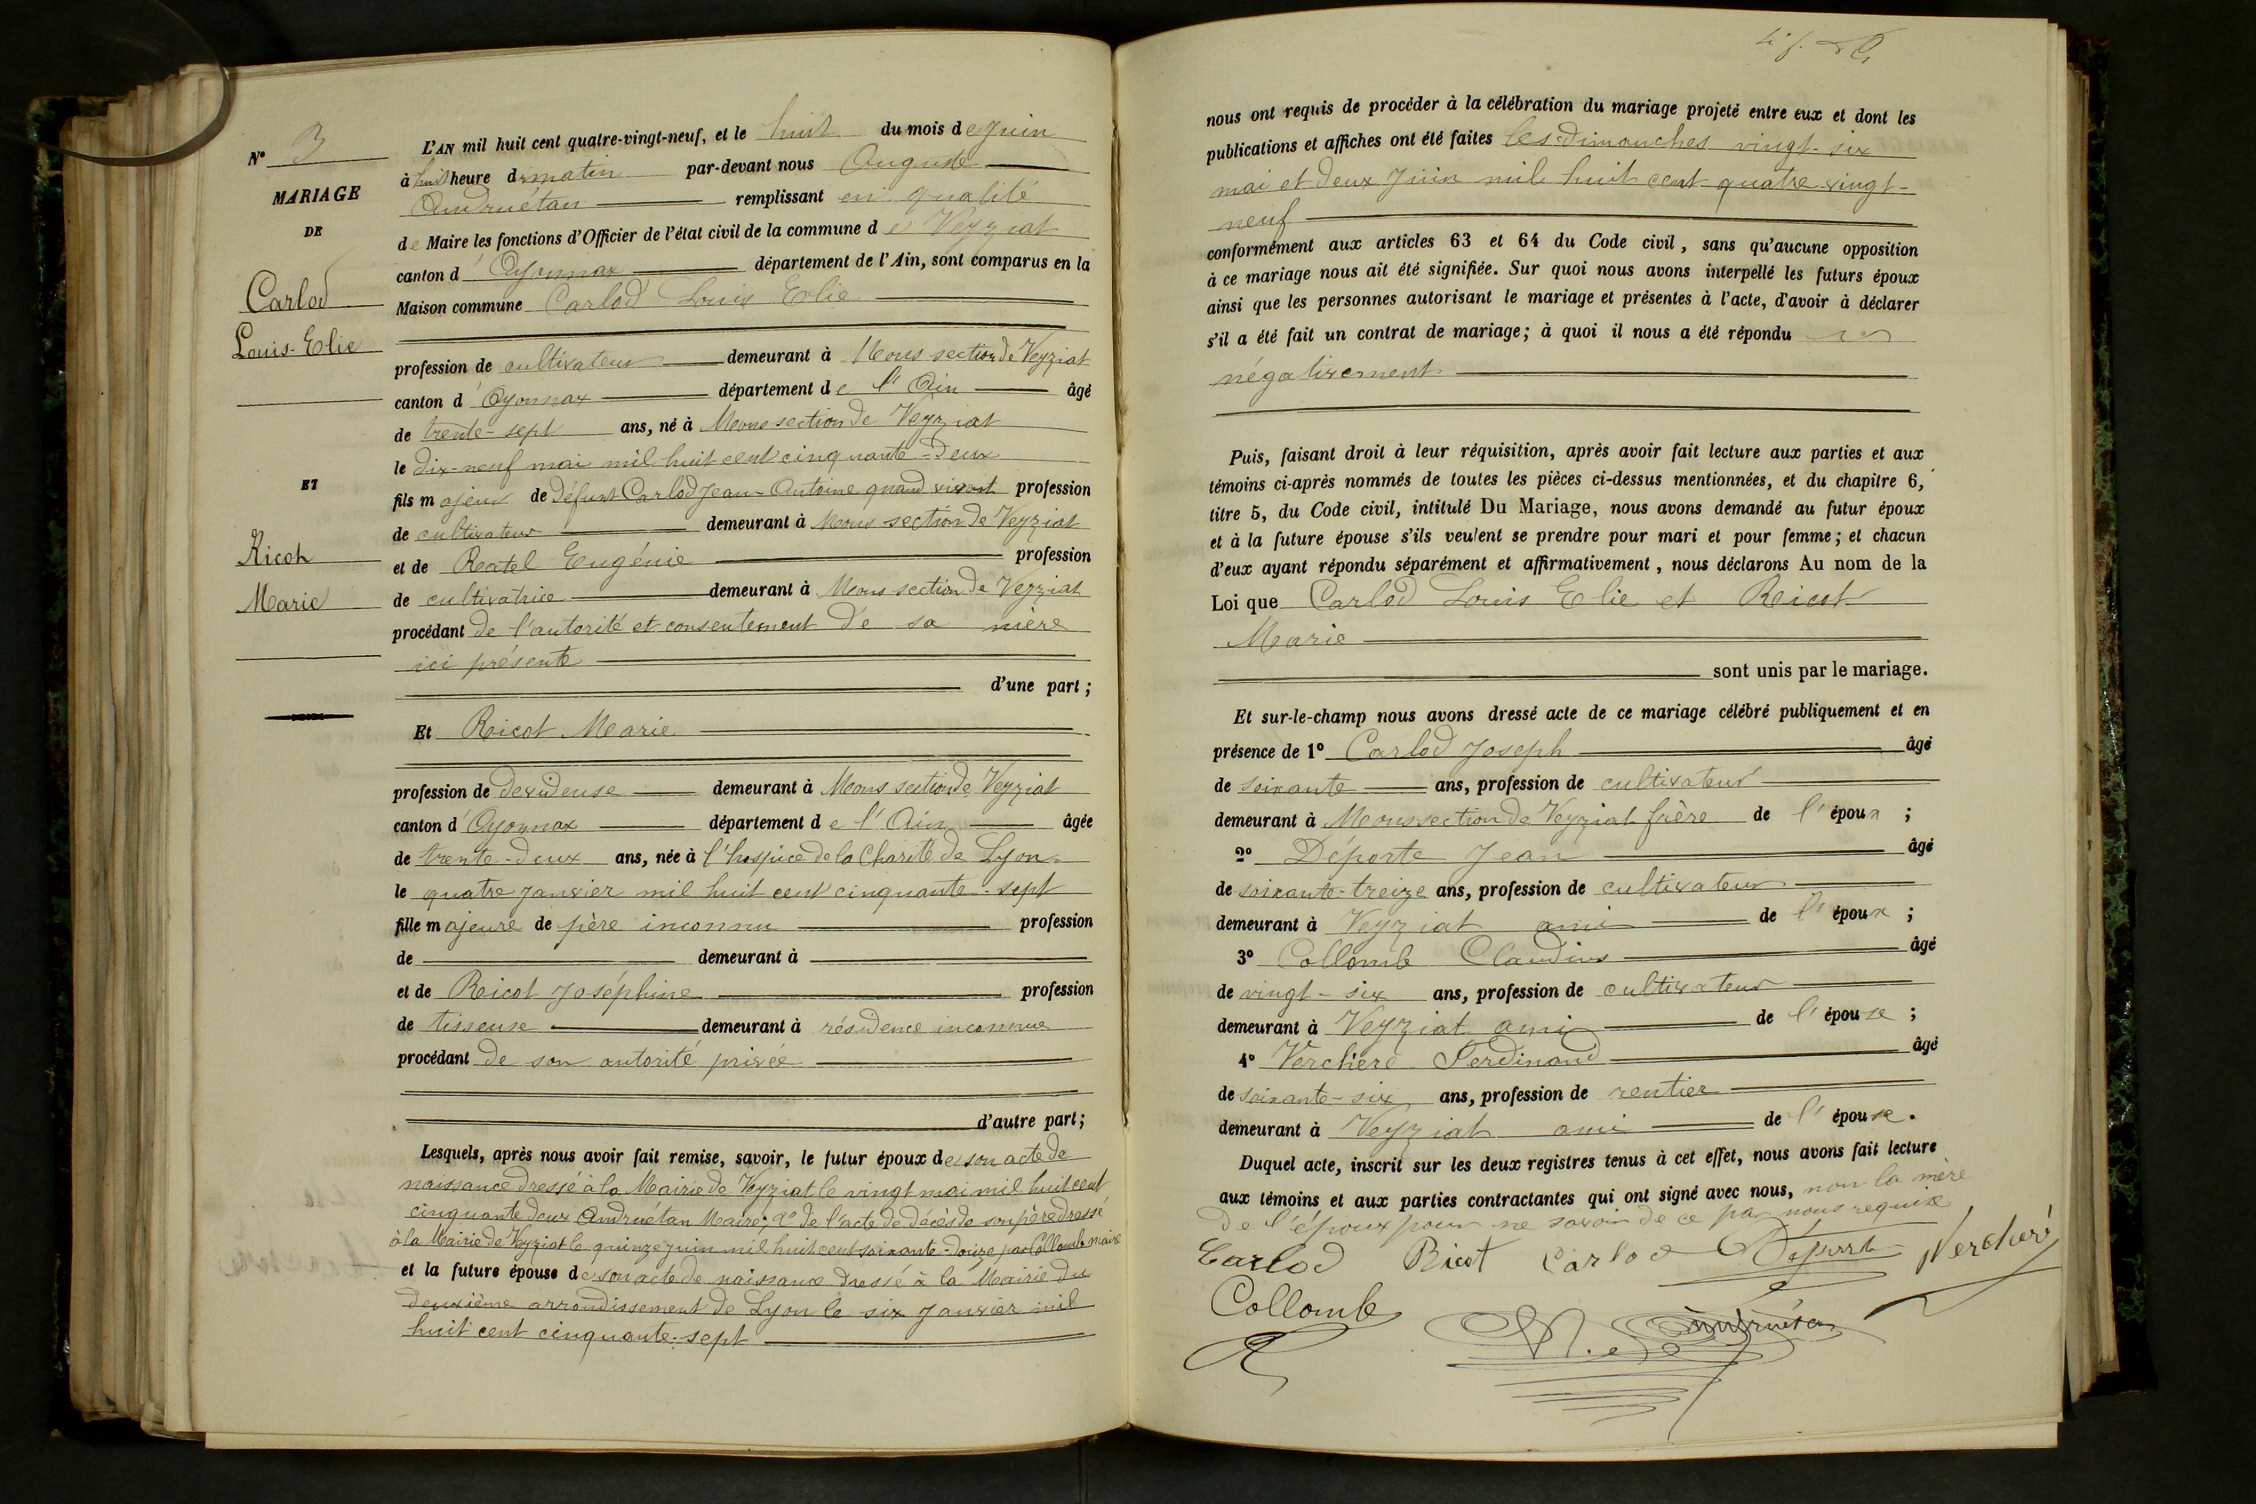 N° 3
MARIAGE
DE
Carlod
Louis-Elie
ET
Ricot
Marie
L'AN mil huit cent quatre-vingt-neuf, et le huit du mois de Juin
à huit heure du matin par-devant nous Auguste
Andruétan remplissant en qualité
de Maire les fonctions d'Officier de l'état civil de la commune de Veyziat
canton d'Oyonnax département de l'Ain, sont comparus en la
Maison commune Carlod Louis Elie
profession de cultivateur demeurant à Mons section de Veyziat
canton d'Oyonnax département de l'Ain âgé
de trente-sept ans, né à Mons section de Veyziat
le dix-neuf mai mil huit cent cinquante-deux
fils majeur de Défunt Carlod Jean-Antoine quand vivant profession
de cultivateur demeurant à Mons section de Veyziat
et de Ratel Eugénie profession
de cultivatrice demeurant à Mons section de Veyziat
procédant de l'autorité et consentement de sa mère
ici présente
d'une part ;
Et Ricot Marie
profession de devideuse demeurant à Mons section de Veyziat
canton d'Oyonnax département de l'Ain âgée
de trente-deux ans, née à l'hospice de la Charité de Lyon
le quatre Janvier mil huit cent cinquante-sept
fille majeure de père inconnu profession
de demeurant à
et de Ricot Joséphine profession
de tisseuse demeurant à résidence inconnue
procédant de son autorité privée
d'autre part ;
Lesquels, après nous avoir fait remise, savoir, le futur époux de son acte de
naissance dressé à la Mairie de Veyziat le vingt mai mil huit cent
cinquante deux Andruétan Maire; 2° de l'acte de décès de son père dressé
à la Mairie de Veyziat le quinze juin mil huit cent soixante-douze par Collomb maire
et la future épouse de son acte de naissance dressé à la Mairie du
deuxième arrondissement de Lyon le six Janvier mil
huit cent cinquante-sept
nous ont requis de procéder à la célébration du mariage projeté entre eux et dont les
publications et affiches ont été faites les Dimanches vingt-six
mai et deux Juin mil huit cent quatre vingt-
neuf
conformément aux articles 63 et 64 du Code civil, sans qu'aucune opposition
à ce mariage nous ait été signifiée. Sur quoi nous avons interpellé les futurs époux
ainsi que les personnes autorisant le mariage et présentes à l'acte, d'avoir à déclarer
s'il a été fait un contrat de mariage; à quoi il nous a été répondu
négativement
Puis, faisant droit à leur réquisition, après avoir fait lecture aux parties et aux
témoins ci-après nommés de toutes les pièces ci-dessus mentionnées, et du chapitre 6,
titre 5, du Code civil, intitulé Du Mariage, nous avons demandé au futur époux
et à la future épouse s'ils veulent se prendre pour mari et pour femme; et chacun
d'eux ayant répondu séparément et affirmativement, nous déclarons Au nom de la
Loi que Carlod Louis Elie et Ricot
Marie
sont unis par le mariage.
Et sur-le-champ nous avons dressé acte de ce mariage célébré publiquement et en
présence de 1° Carlod Joseph âgé
de soixante ans, profession de cultivateur
demeurant à Mons section de Veyziat frère de l'époux ;
2° Déporte Jean âgé
de soixante-treize ans, profession de cultivateur
demeurant à Veyziat ami de l'époux ;
3° Collomb Claudius âgé
de vingt-six ans, profession de cultivateur
demeurant à Veyziat ami de l'épouse ;
4° Verchère Ferdinand âgé
de soixante-six ans, profession de rentier
demeurant à Veyziat ami de l'épouse.
Duquel acte, inscrit sur les deux registres tenus à cet effet, nous avons fait lecture
aux témoins et aux parties contractantes qui ont signé avec nous, non la mère
De l'époux pour ne savoir de ce par nous requise
Carlod Ricot Carlod Déporte Verchère
Collomb
Andruétan